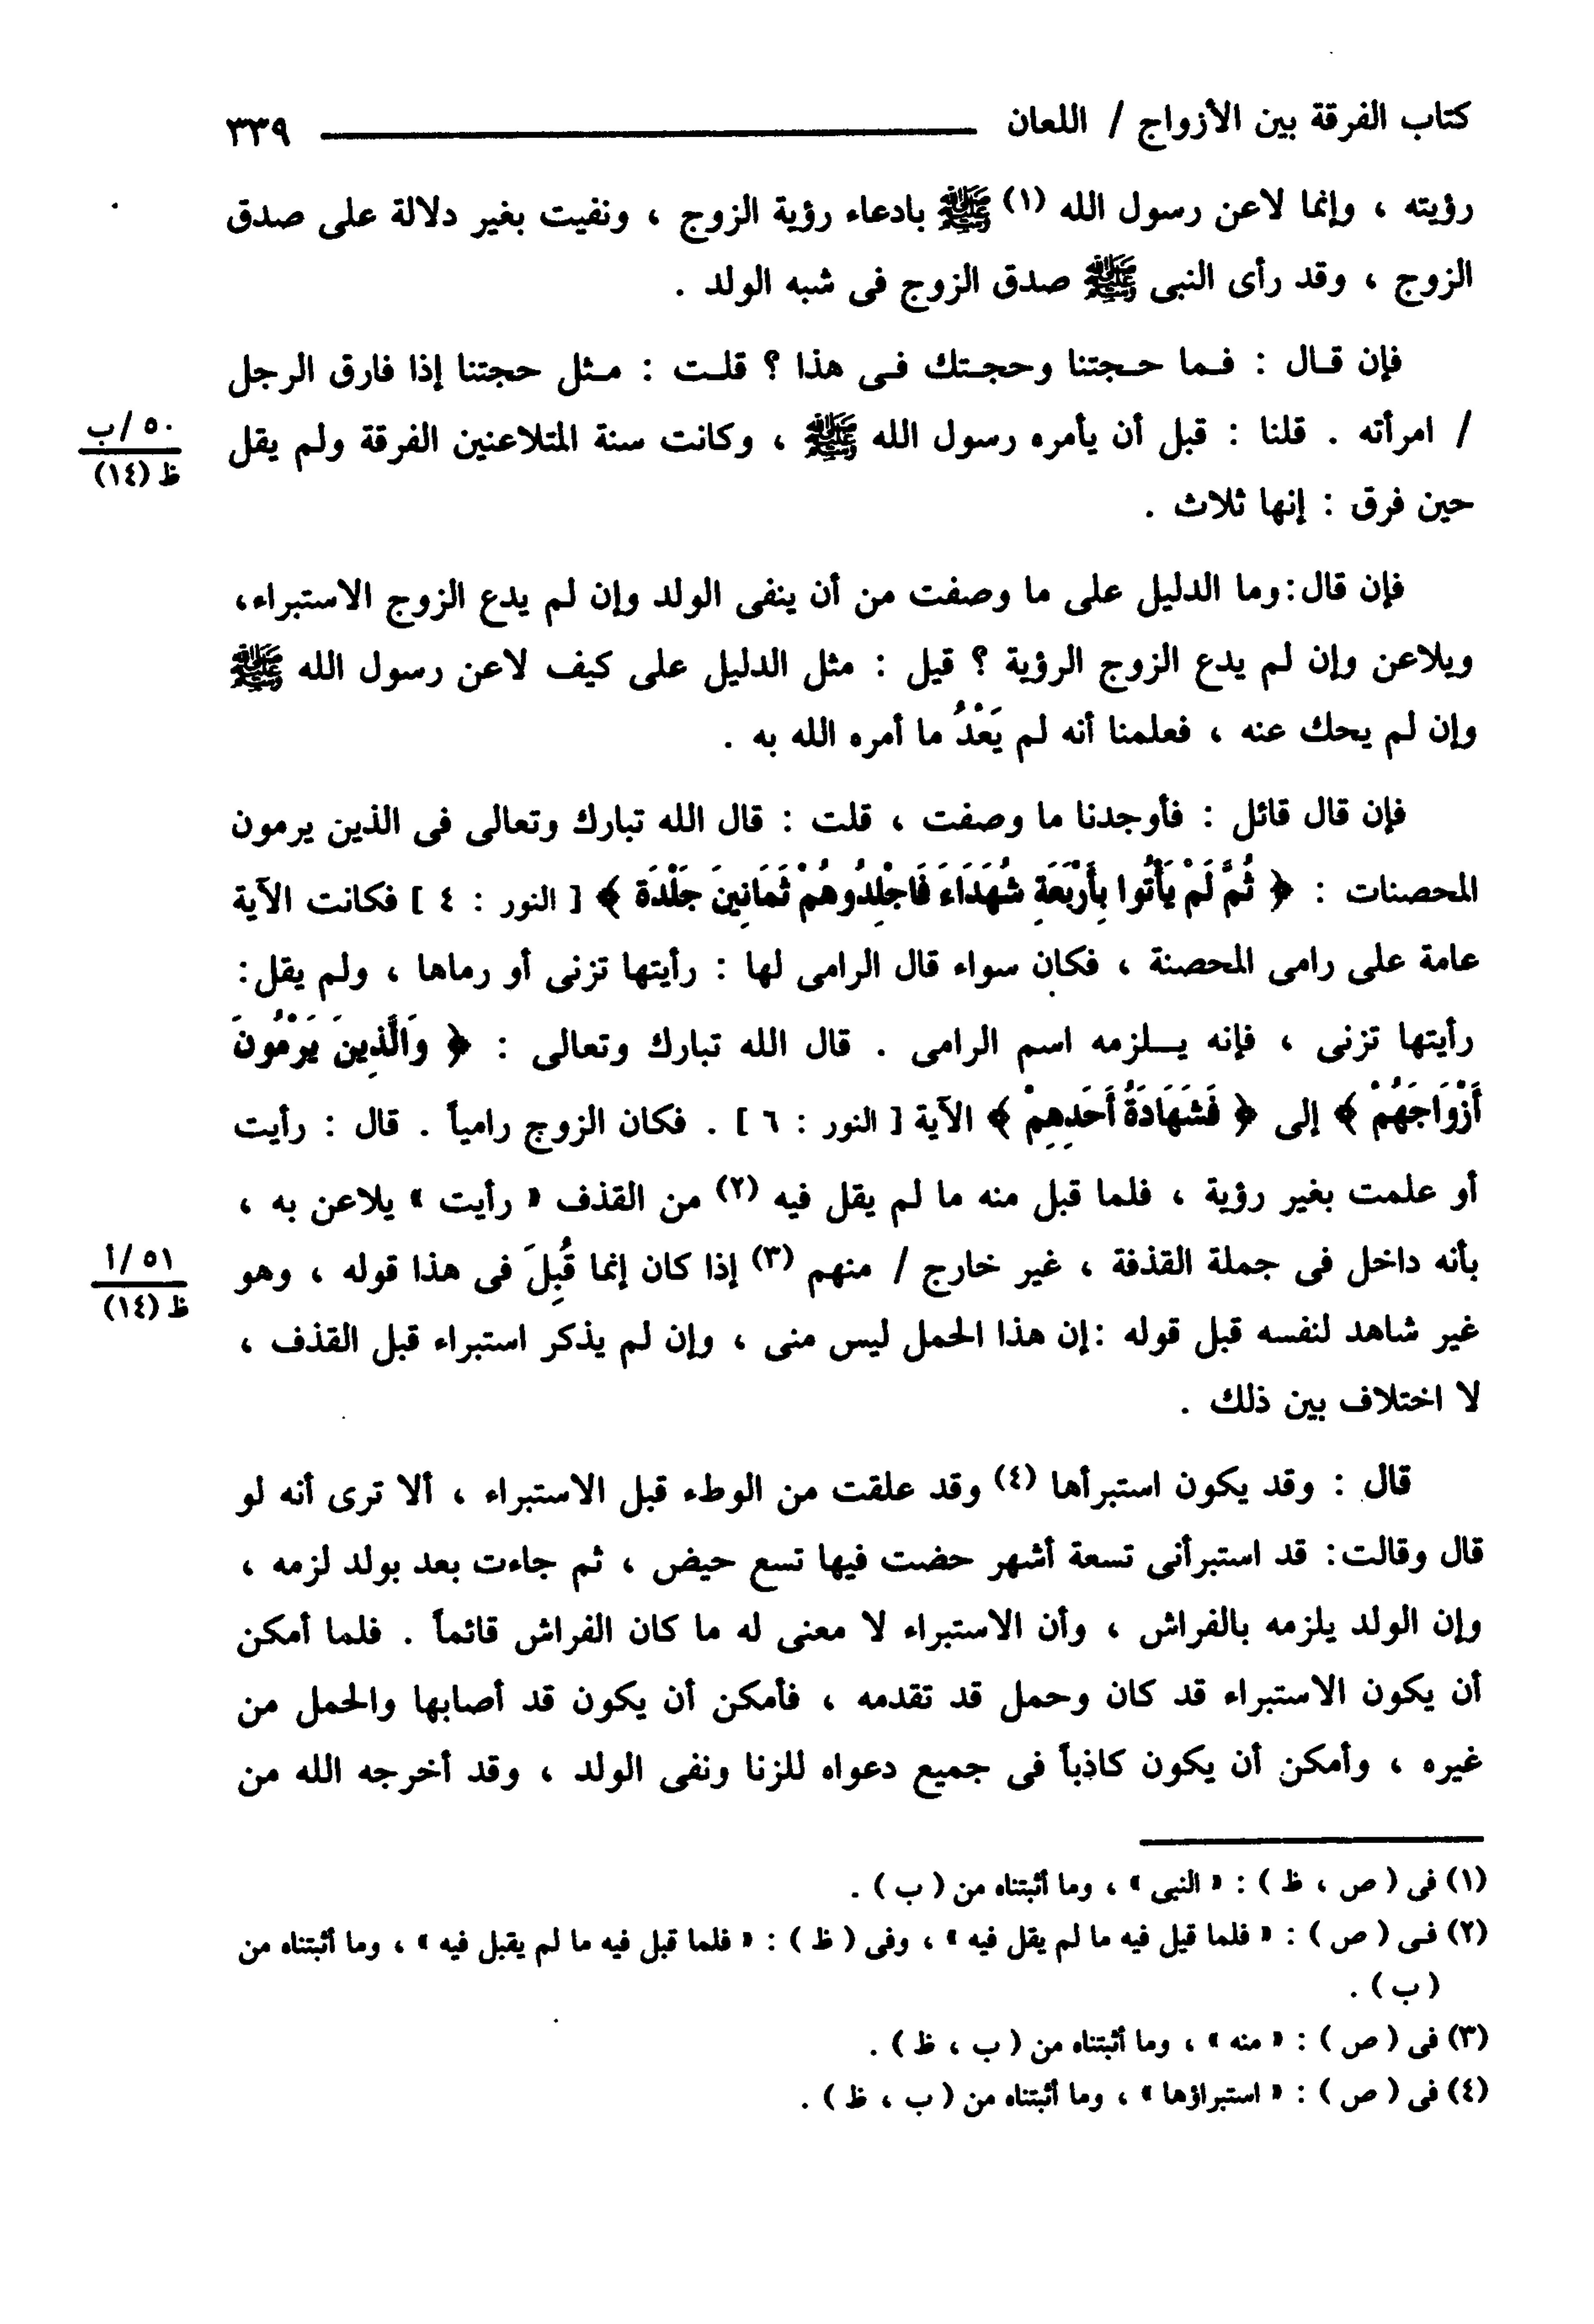 كتاب الفرقة بين الأزواج / اللعان ٣٣٩
رؤيته ، وإنما لاعن رسول الله (١) ﷺ بادعاء رؤية الزوج ، ونفيت بغير دلالة على صدق
الزوج ، وقد رأى النبى ﷺ صدق الزوج فى شبه الولد .
فإن قال : فما حجتنا وحجتك فى هذا ؟ قلت : مثل حجتنا إذا فارق الرجل
/ امرأته . قلنا : قبل أن يأمره رسول الله ﷺ ، وكانت سنة المتلاعنين الفرقة ولم يقل
٥٠/ب
ظ (١٤)
حين فرق : إنها ثلاث .
فإن قال:وما الدليل على ما وصفت من أن ينفى الولد وإن لم يدع الزوج الاستبراء،
ويلاعن وإن لم يدع الزوج الرؤية ؟ قيل : مثل الدليل على كيف لاعن رسول الله ﷺ
وإن لم يحك عنه ، فعلمنا أنه لم يَعْدُ ما أمره الله به .
فإن قال قائل : فأوجدنا ما وصفت ، قلت : قال الله تبارك وتعالى فى الذين يرمون
المحصنات : ﴿ ثُمَّ لَمْ يَأْتُوا بِأَرْبَعَةِ شُهَدَاءَ فَاجْلِدُوهُمْ ثَمَانِينَ جَلْدَة ﴾ [ النور : ٤ ] فكانت الآية
عامة على رامى المحصنة ، فكان سواء قال الرامى لها : رأيتها تزنى أو رماها ، ولم يقل:
رأيتها تزنى ، فإنه يلزمه اسم الرامى . قال الله تبارك وتعالى : ﴿ وَالَّذِينَ يَرْمُونَ
أَزْوَاجَهُمْ ﴾ إلى ﴿ فَشَهَادَةُ أَحَدِهِمْ ﴾ الآية [ النور : ٦ ] . فكان الزوج رامياً . قال : رأيت
أو علمت بغير رؤية ، فلما قبل منه ما لم يقل فيه (٢) من القذف « رأيت » يلاعن به ،
بأنه داخل فى جملة القذفة ، غير خارج / منهم (٣) إذا كان إنما قُبِلَ فى هذا قوله ، وهو
٥١/أ
ظ (١٤)
غير شاهد لنفسه قبل قوله :إن هذا الحمل ليس منى ، وإن لم يذكر استبراء قبل القذف ،
لا اختلاف بين ذلك .
قال : وقد يكون استبرأها (٤) وقد علقت من الوطء قبل الاستبراء ، ألا ترى أنه لو
قال وقالت: قد استبرأنى تسعة أشهر حضت فيها تسع حيض ، ثم جاءت بعد بولد لزمه ،
وإن الولد يلزمه بالفراش ، وأن الاستبراء لا معنى له ما كان الفراش قائماً . فلما أمكن
أن يكون الاستبراء قد كان وحمل قد تقدمه ، فأمكن أن يكون قد أصابها والحمل من
غيره ، وأمكن أن يكون كاذباً فى جميع دعواه للزنا ونفى الولد ، وقد أخرجه الله من
(١) فى ( ص ، ظ ) : « النبى » ، وما أثبتناه من ( ب ) .
(٢) فى ( ص ) : « فلما قيل فيه ما لم يقل فيه » ، وفى ( ظ ) : « فلما قبل فيه ما لم يقبل فيه » ، وما أثبتناه من
( ب ) .
(٣) فى ( ص ) : « منه » ، وما أثبتناه من ( ب ، ظ ) .
(٤) فى ( ص ) : « استبراؤها » ، وما أثبتناه من ( ب ، ظ ) .